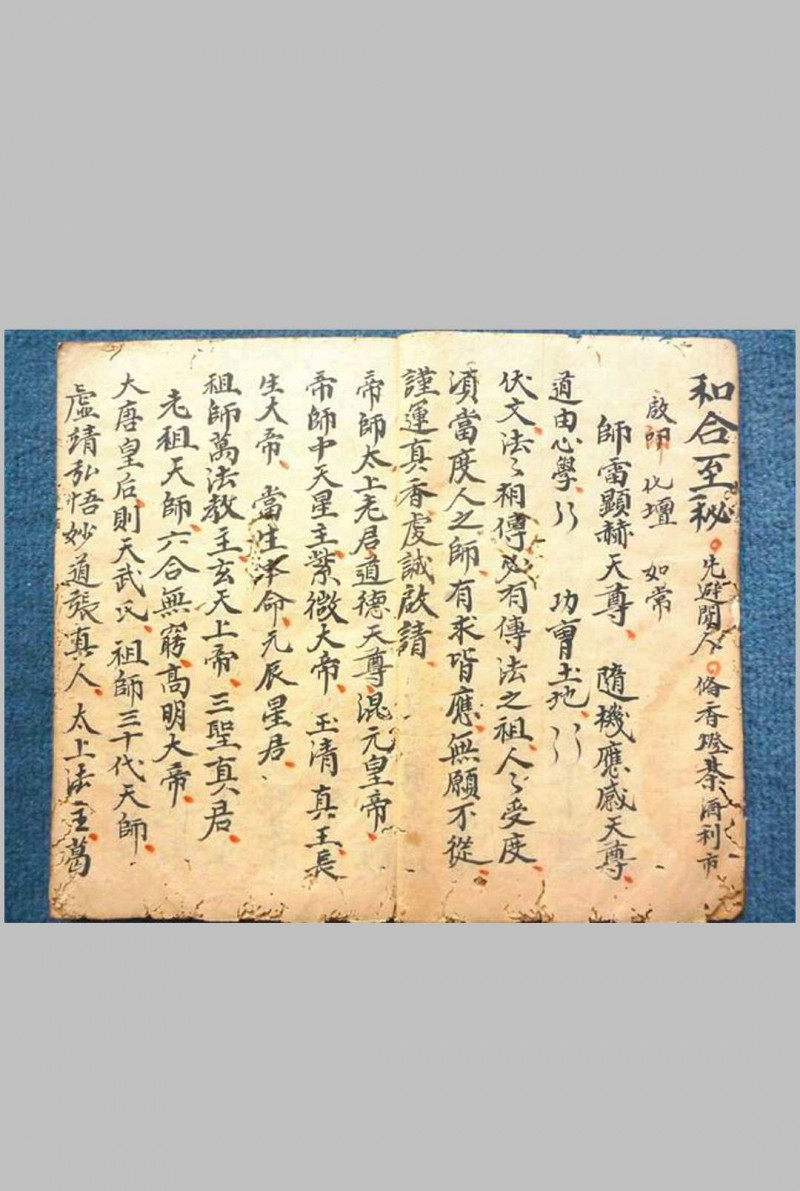 和合至秘。先避閒人。俻香燈棊酒利市
啟明 化壇 如常
師雷顯赫天尊、隨機應感天尊、
道由心學、〻 功曹土地、〻
伏文法〻相傳、必有傳法之祖、人〻受度、
須當度人之師、有求皆應、無願不從、
謹運真香、虔誠啟請、
帝師太上老君道德天尊混元皇帝、
帝師中天星主紫微大帝、玉清真王長
生大帝、當生本命、元辰星君、
祖師萬法教主玄天上帝、三聖真君、
老祖天師、六合無窮、高明大帝、
大唐皇后、則天武氏、祖師三十代天師、
虛靖弘悟妙道張真人、太上法主、葛